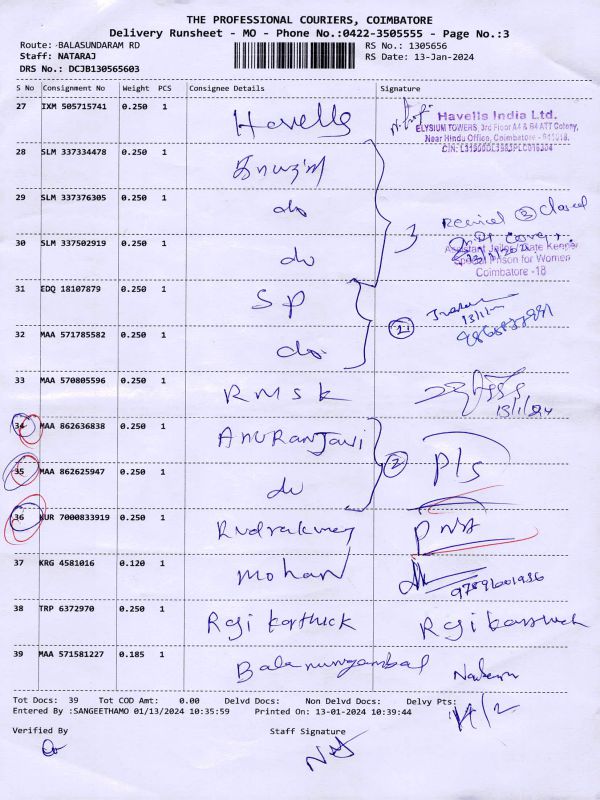 THE PROFESSIONAL COURIERS, COIMBATORE
Delivery Runsheet - MO - Phone No.:0422-3505555 - Page No.:3
Route: BALASUNDARAM RD RS No.: 1305656
Staff: NATARAJ RS Date: 13-Jan-2024
DRS No.: DCJB130565603
S No Consignment No Weight PCS Consignee Details Signature
27 IXM 505715741 0.250 1 Havells
Havells India Ltd.
ELYSIUM TOWERS, 3rd Floor A4 & B4 ATT Colony,
Near Hindu Office, Coimbatore - 641018.
28 SLM 337334478 0.250 1
29 SLM 337376305 0.250 1 do
3 Received 3 Closed
30 SLM 337502919 0.250 1 do
Assistant Jailor / Gate Keeper
Special Prison for Women
Coimbatore - 18
31 EDQ 18107879 0.250 1 SP
32 MAA 571785582 0.250 1 do
33 MAA 570805596 0.250 1 RMSK
13/1/24
34 MAA 862636838 0.250 1 Anuranjani
2 Pls
35 MAA 862625947 0.250 1 do
36 KUR 7000833919 0.250 1
37 KRG 4581016 0.120 1 Mohan
38 TRP 6372970 0.250 1 Raji Karthick Raji Karthick
39 MAA 571581227 0.185 1
Tot Docs: 39 Tot COD Amt: 0.00 Delvd Docs: Non Delvd Docs: Delvy Pts:
Entered By :SANGEETHAMO 01/13/2024 10:35:59 Printed On: 13-01-2024 10:39:44
Verified By Staff Signature